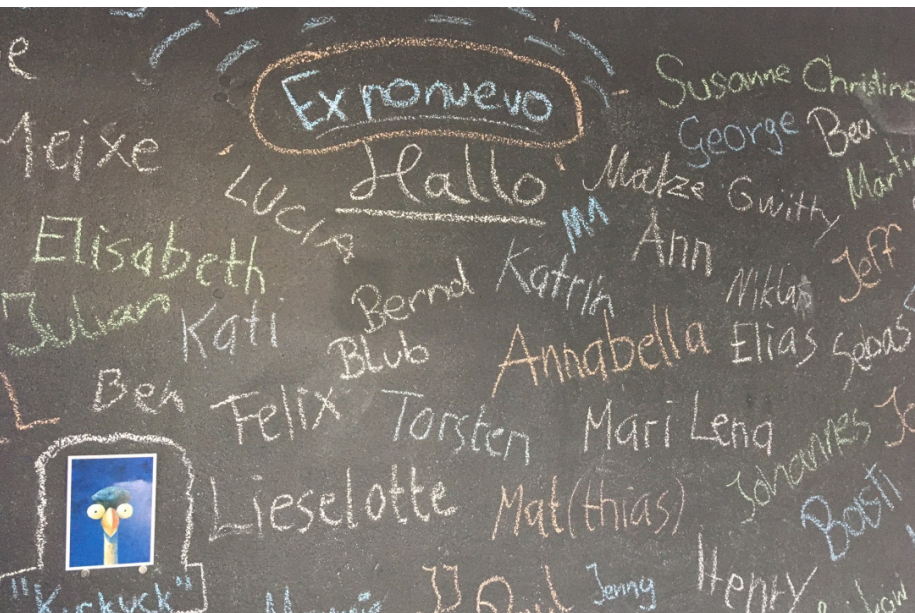 Exponuevo
Susanne Christine
George Bea
Hallo
Meixe
LUCIA
Matze Gwitty
Martin
Elisabeth
Ann
Jeff
Katrin
Bernd
Niklas
Julian Kati
Blub
Annabella Elias Sebas
Ben
Felix Torsten Mari Lena
Johannes
Lieselotte Mat(thias)
Basti
"Kuckuck"
Jenny Henry